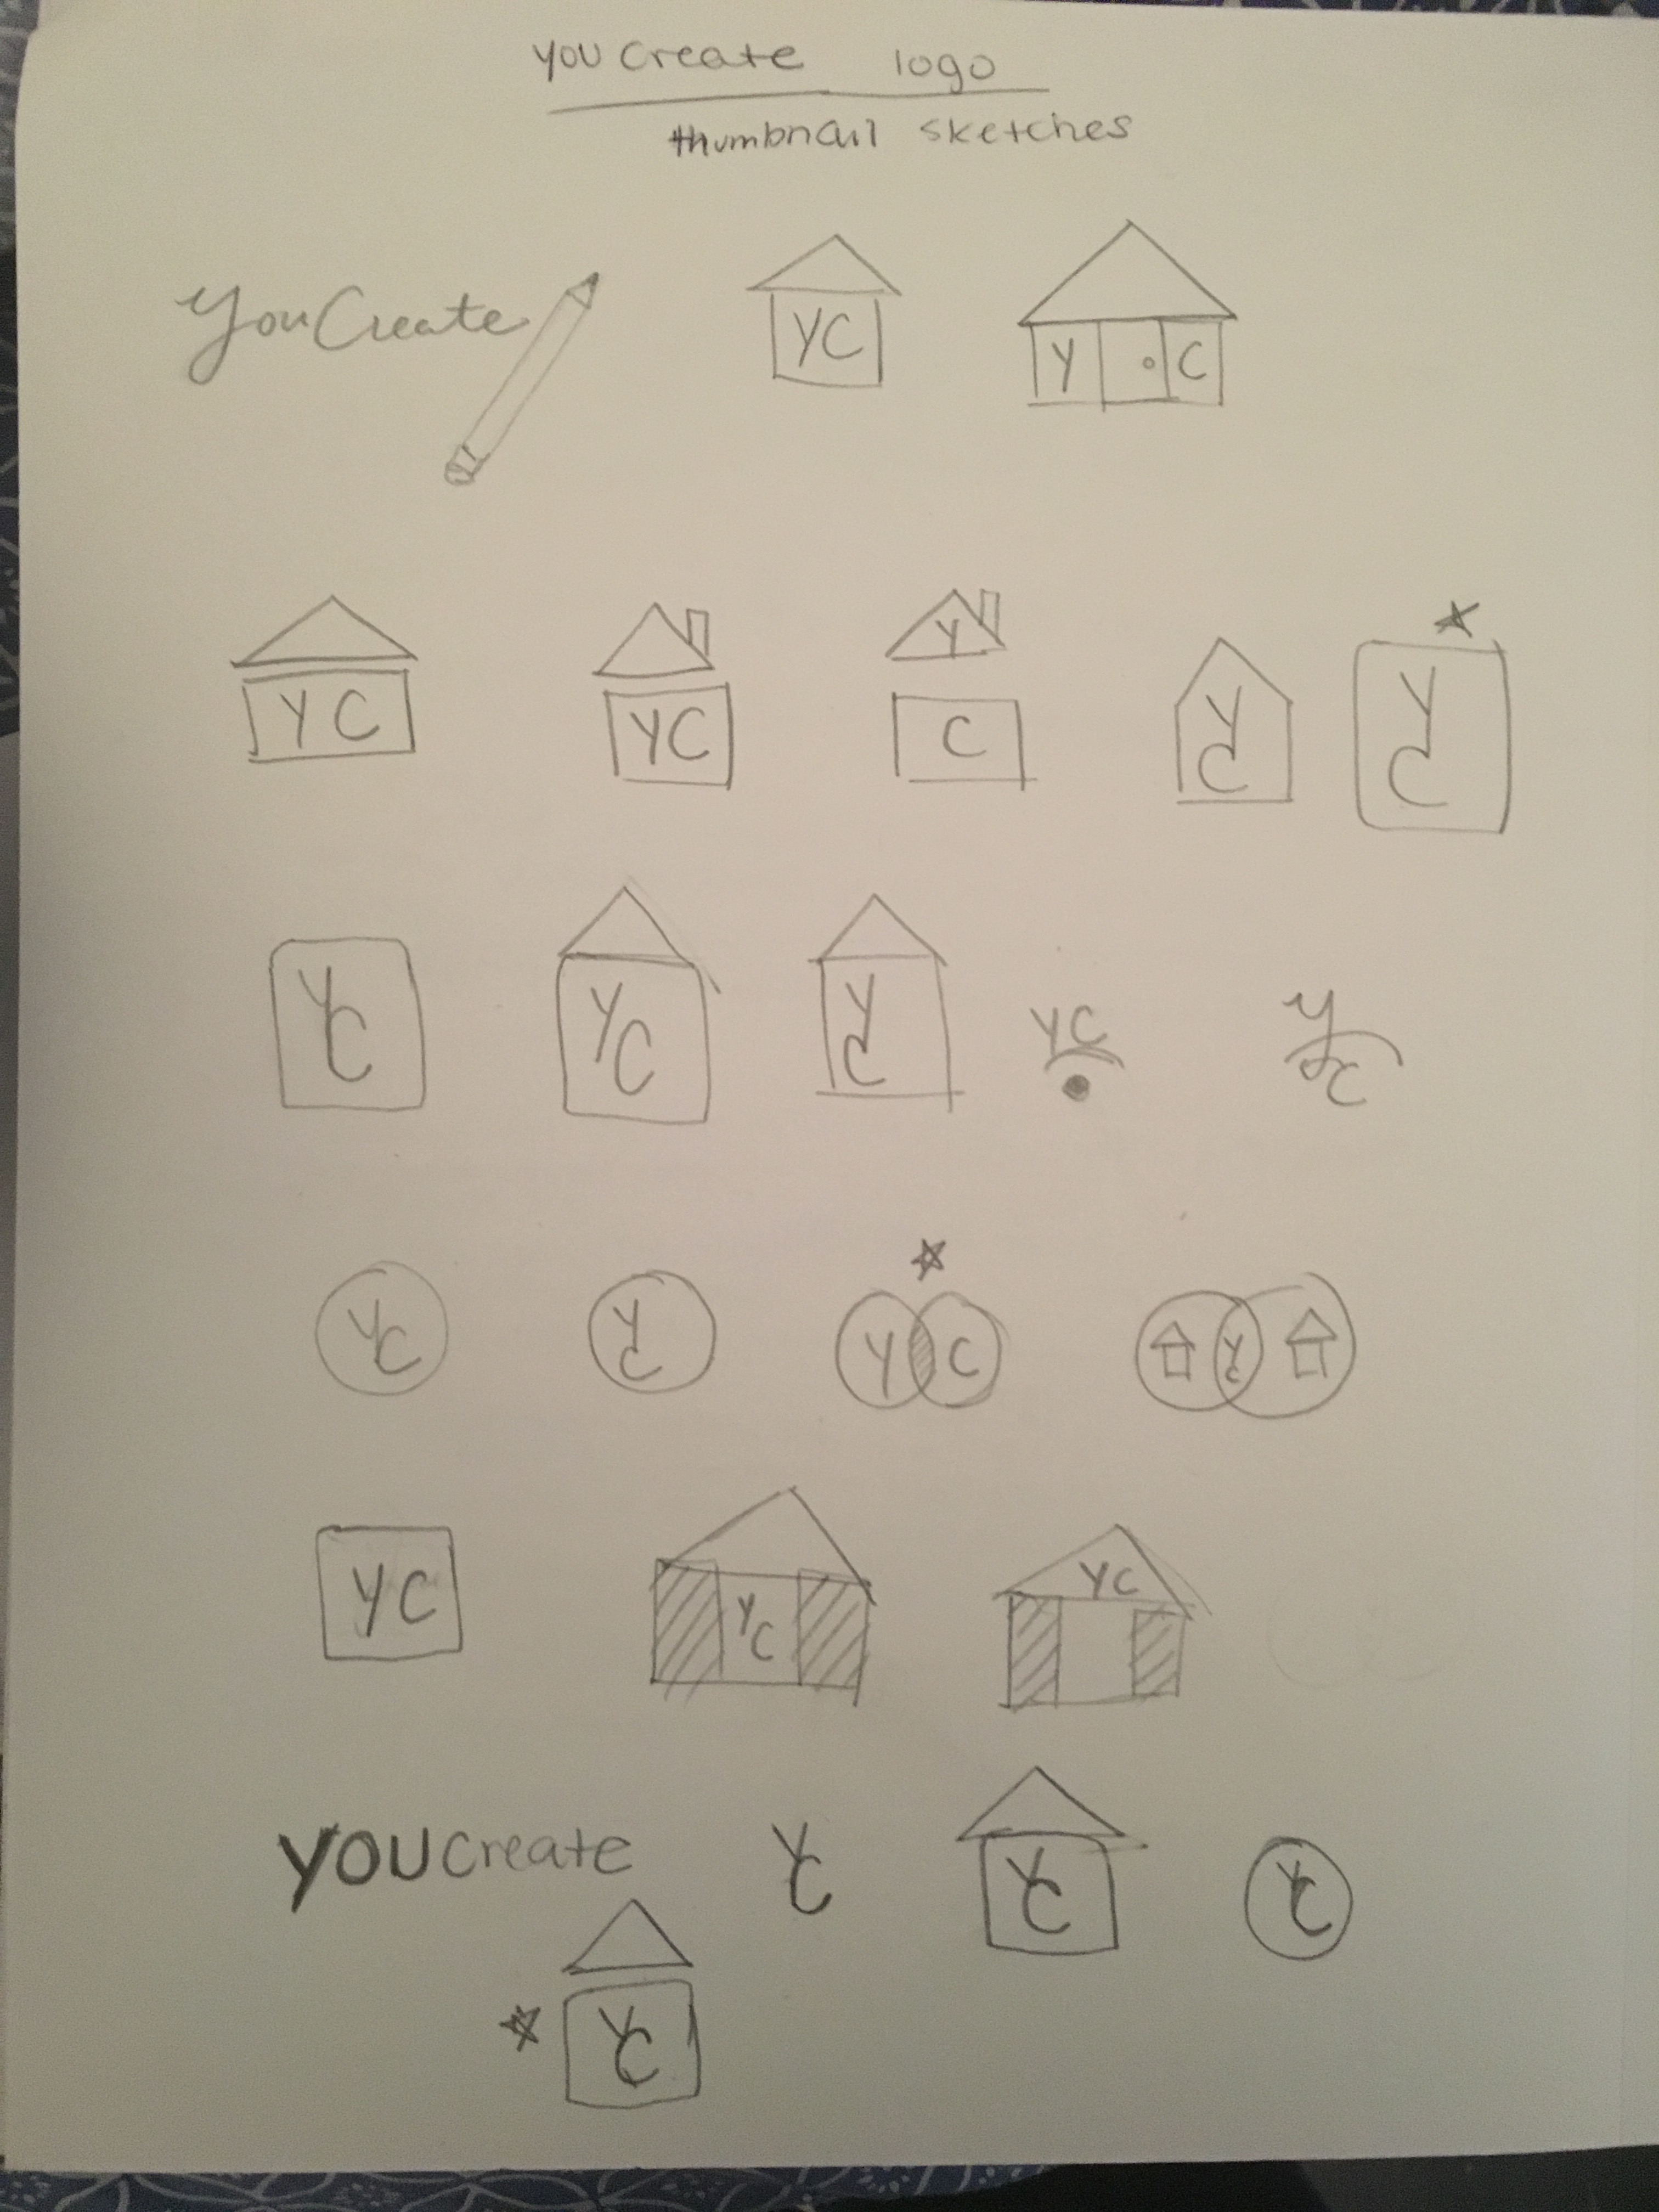 you create logo
thumbnail sketches
YouCreate
YC
Y C
Y C
YC
Y
C
Y
C
Y
C
YC
YC
YC
YC
YC
YC
YC
Y C
YC
YC
YC
YC
YOUcreate
YC
YC
YC
YC